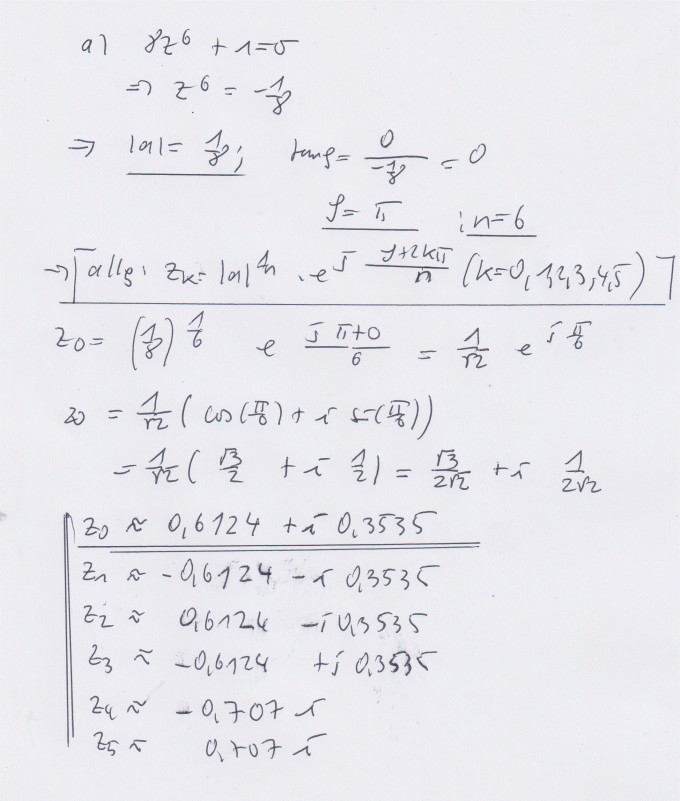 a) 8z⁶ + 1 = 0
⇒ z⁶ = -1/8
⇒ |a| = 1/8 ; tan φ = 0/(-1/8) = 0
φ = π ; n = 6
→ allg: z_k = |a|^(1/n) · e^(j (φ+2kπ)/n) (k=0,1,2,3,4,5)
z₀ = (1/8)^(1/6) e^(j (π+0)/6) = 1/√2 e^(j π/6)
z₀ = 1/√2 (cos(π/6) + i sin(π/6))
= 1/√2 (√3/2 + i 1/2) = √3/(2√2) + i 1/(2√2)
z₀ ≈ 0,6124 + i 0,3535
z₁ ≈ -0,6124 - i 0,3535
z₂ ≈ 0,6124 - i 0,3535
z₃ ≈ -0,6124 + i 0,3535
z₄ ≈ -0,707 i
z₅ ≈ 0,707 i